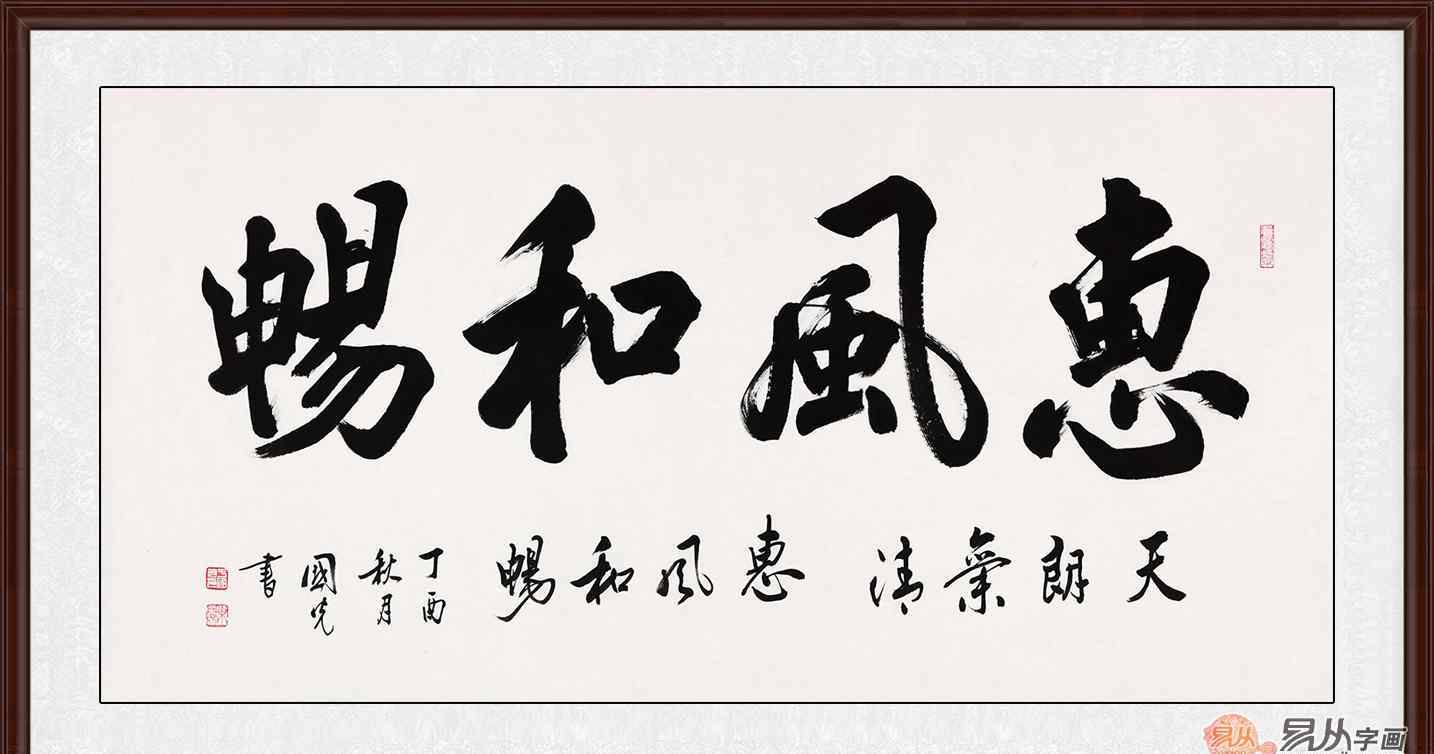 惠風和暢
天朗氣清 惠風和暢
丁酉
秋月
國光
書
易从
易从字画